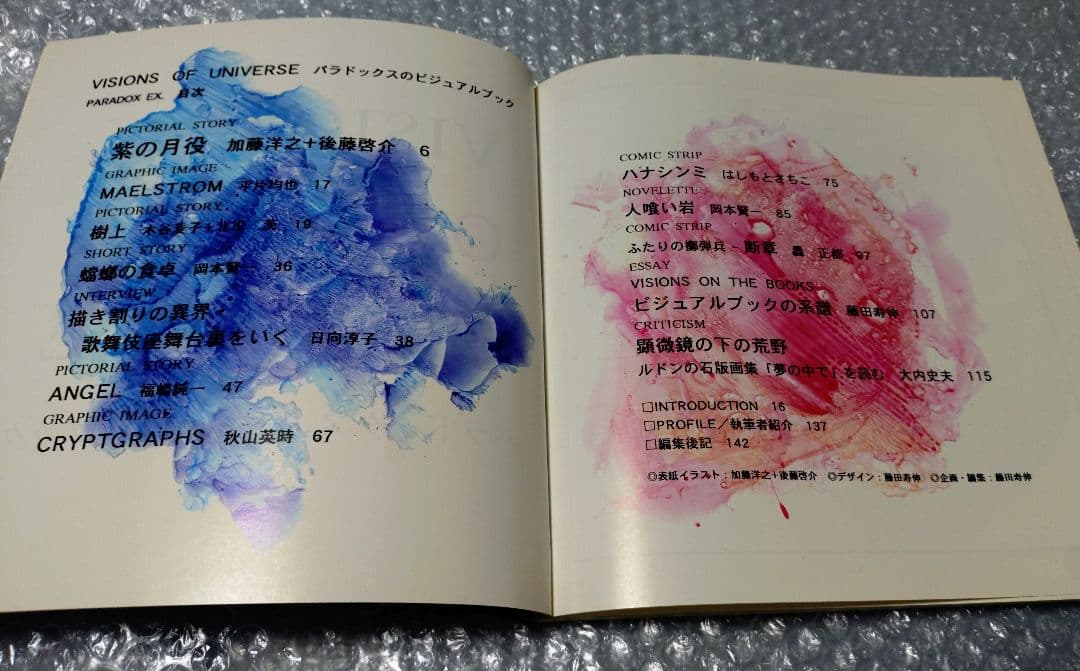 VISIONS OF UNIVERSE パラドックスのビジュアルブック
PARADOX EX. 目次
PICTORIAL STORY
紫の月役 加藤洋之+後藤啓介 6
GRAPHIC IMAGE
MAELSTROM 平片均也 17
PICTORIAL STORY
樹上 19
SHORT STORY
蟷螂の食卓 岡本賢一 36
INTERVIEW
描き割りの異界
歌舞伎座舞台裏をいく 日向淳子 38
PICTORIAL STORY
ANGEL 福嶋純一 47
GRAPHIC IMAGE
CRYPTGRAPHS 秋山英時 67
COMIC STRIP
ハナシンミ はしもとさちこ 75
NOVELETTE
人喰い岩 岡本賢一 85
COMIC STRIP
ふたりの擲弾兵-断章 轟 正郷 97
ESSAY
VISIONS ON THE BOOKS
ビジュアルブックの系譜 藤田寿伸 107
CRITICISM
顕微鏡の下の荒野
ルドンの石版画集「夢の中で」を読む 大内史夫 115
□INTRODUCTION 16
□PROFILE/執筆者紹介 137
□編集後記 142
◎表紙イラスト:加藤洋之+後藤啓介 ◎デザイン:藤田寿伸 ◎企画・編集:藤田寿伸